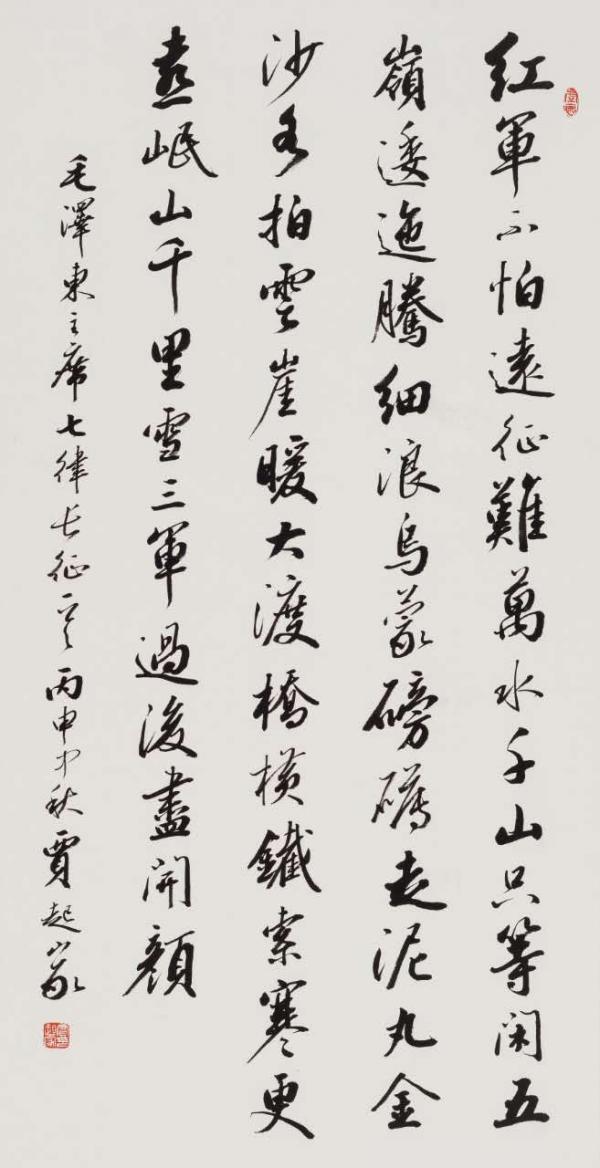 紅軍不怕遠征難萬水千山只等閑五
嶺逶迤騰細浪烏蒙磅礴走泥丸金
沙水拍雲崖暖大渡橋横鐵索寒更
喜岷山千里雪三軍過後盡開顔
毛澤東主席七律長征一首丙申中秋賈起家